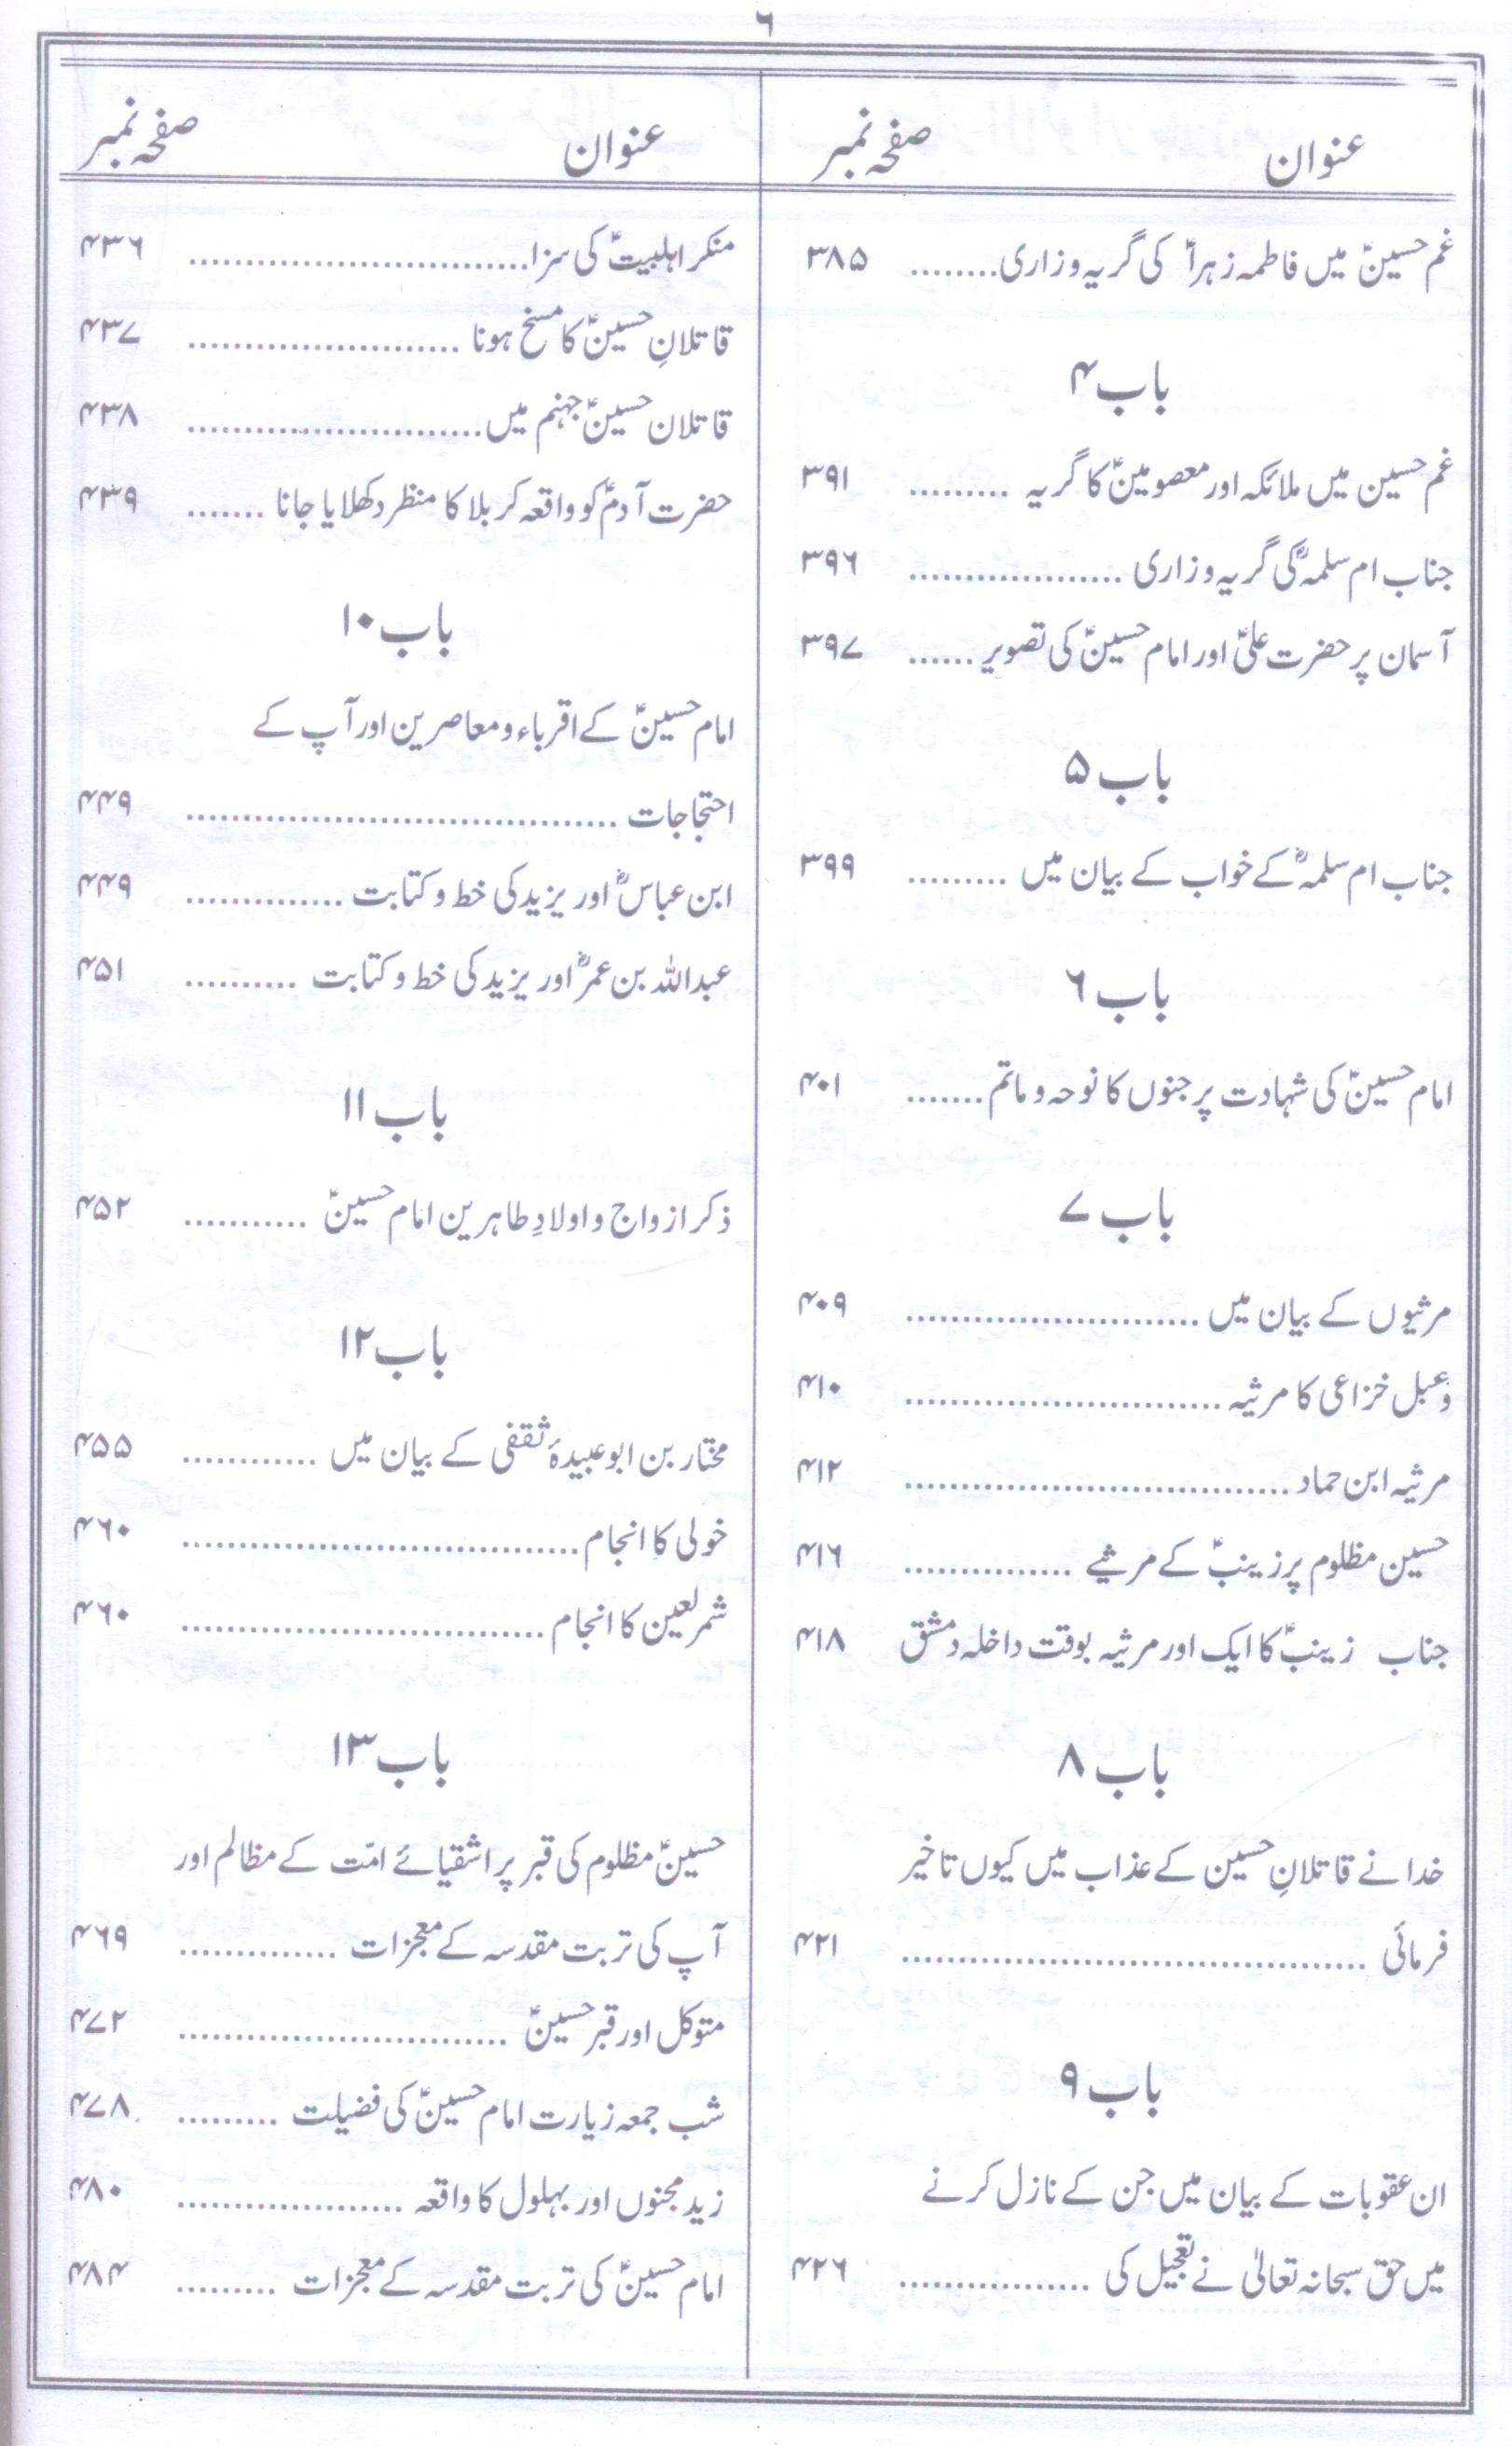 ۶
عنوان صفحہ نمبر
غم حسینؑ میں فاطمہ زہراؑ کی گریہ وزاری ......... ۳۸۵
باب ۴
غم حسین میں ملائکہ اور معصومینؑ کا گریہ ......... ۳۹۱
جناب ام سلمہؓ کی گریہ وزاری ................... ۳۹۶
آسمان پر حضرت علیؑ اور امام حسینؑ کی تصویر ...... ۳۹۷
باب ۵
جناب ام سلمہؓ کے خواب کے بیان میں ......... ۳۹۹
باب ۶
امام حسینؑ کی شہادت پر جنوں کا نوحہ و ماتم ....... ۴۰۱
باب ۷
مرثیوں کے بیان میں .......................... ۴۰۹
دعبل خزاعی کا مرثیہ ............................ ۴۱۰
مرثیہ ابن حماد .................................. ۴۱۲
حسین مظلوم پر زینبؑ کے مرثیے ............... ۴۱۶
جناب زینبؑ کا ایک اور مرثیہ بوقت داخلہ دمشق ۴۱۸
باب ۸
خدا نے قاتلانِ حسین کے عذاب میں کیوں تاخیر
فرمائی ......................................... ۴۲۱
باب ۹
ان عقوبات کے بیان میں جن کے نازل کرنے
میں حق سبحانہ تعالیٰ نے تعجیل کی ................. ۴۲۶
عنوان صفحہ نمبر
منکر اہلبیتؑ کی سزا .............................. ۴۳۶
قاتلانِ حسینؑ کا مسخ ہونا ........................ ۴۳۷
قاتلان حسینؑ جہنم میں .......................... ۴۳۸
حضرت آدمؑ کو واقعہ کربلا کا منظر دکھلایا جانا ....... ۴۳۹
باب ۱۰
امام حسینؑ کے اقرباء و معاصرین اور آپ کے
احتجاجات ...................................... ۴۴۹
ابن عباسؓ اور یزید کی خط و کتابت .............. ۴۴۹
عبداللہ بن عمرؓ اور یزید کی خط و کتابت .......... ۴۵۱
باب ۱۱
ذکر ازواج و اولادِ طاہرین امام حسینؑ ........... ۴۵۲
باب ۱۲
مختار بن ابو عبیدۂ ثقفی کے بیان میں ............ ۴۵۵
خولی کا انجام ................................... ۴۶۰
شمر لعین کا انجام ................................ ۴۶۰
باب ۱۳
حسینؑ مظلوم کی قبر پر اشقیائے امّت کے مظالم اور
آپ کی تربت مقدسہ کے معجزات .............. ۴۶۹
متوکل اور قبر حسینؑ ............................. ۴۷۲
شب جمعہ زیارت امام حسینؑ کی فضیلت ......... ۴۷۸
زید مجنوں اور بہلول کا واقعہ .................... ۴۸۰
امام حسینؑ کی تربت مقدسہ کے معجزات ......... ۴۸۴